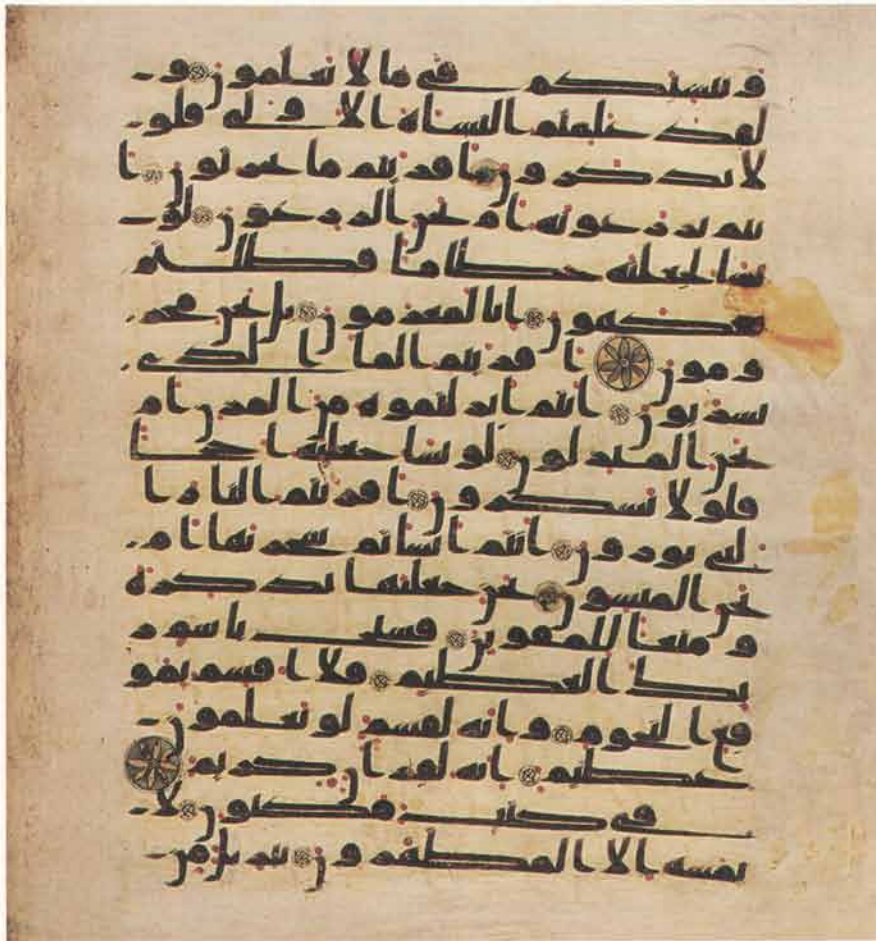 و ننشئكم في ما لا تعلمون و
لقد علمتم النشاة الاولى فلو
لا تذكرون افريتم ما تحرثون ا
نتم تزرعونه ام نحن الزرعون لو
نشا لجعلنه حطاما فظلتم
تفكهون انا لمغرمون بل نحن محر
ومون افريتم الما الذي
تشربون انتم انزلتموه من المزن ام
نحن المنزلون لو نشا جعلنه اجاجا
فلولا تشكرون افريتم النار ا
لتي تورون انتم انشاتم شجرتها ام
نحن المنشون نحن جعلنها تذكرة
و متعا للمقوين فسبح باسم ر
بك العظيم فلا اقسم بمو
قع النجوم وانه لقسم لو تعلمون
عظيم انه لقران كريم
في كتب مكنون لا
يمسه الا المطهرون تنزيل من